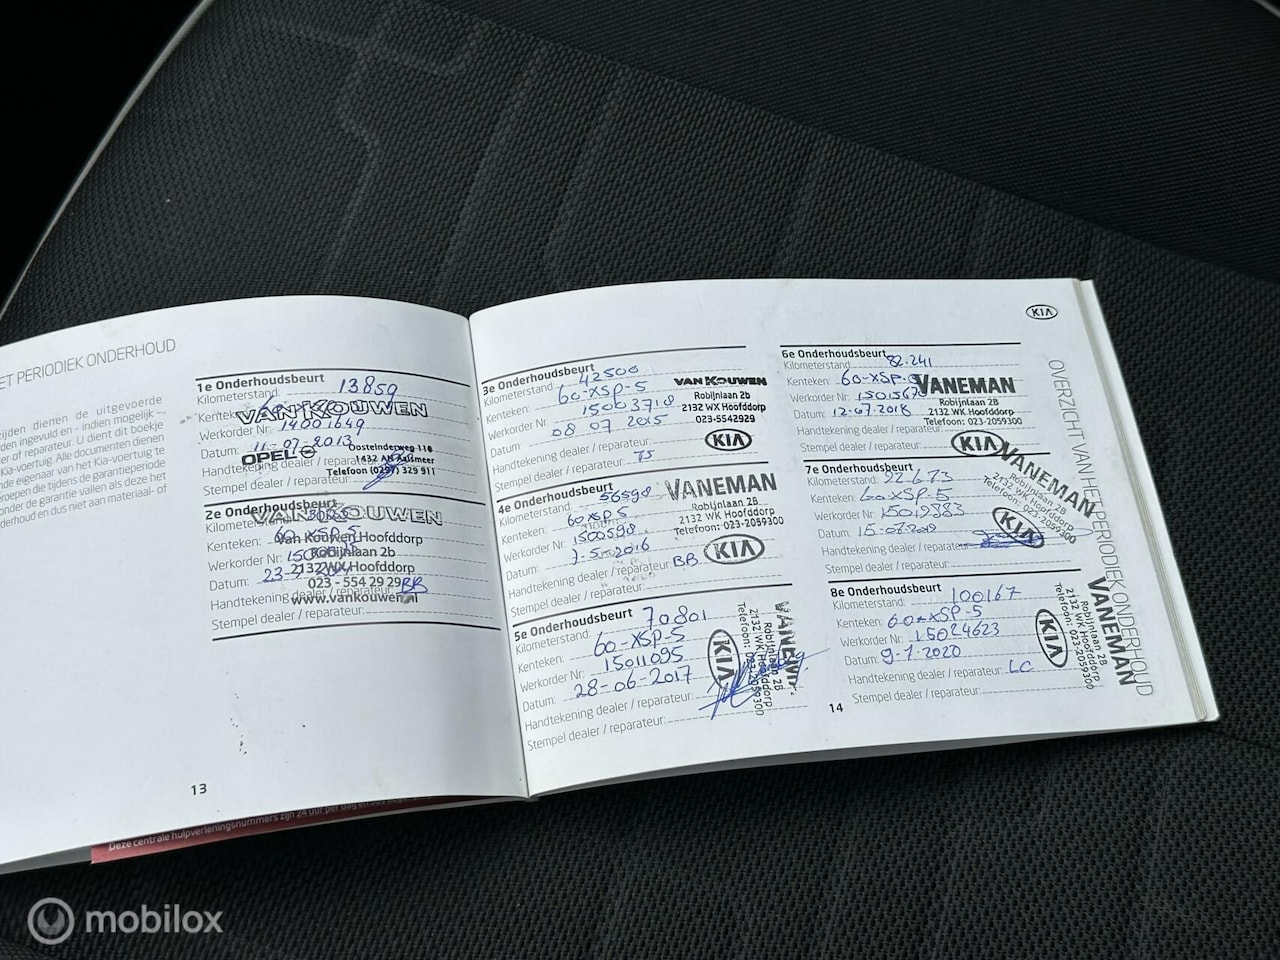 ET PERIODIEK ONDERHOUD
ijden dierren de uitgevoerde
den ingevuld en - indien mogelijk -
er of reparateur. U dient dit boekje
Kia-voertuig. Alle documenten dienen
nde eigenaar van het Kia-voertuig te
roepen die tijdens de garantieperiode
onder de garantie vallen als deze het
derhoud en dus niet aan materiaal- of
13
1e Onderhoudsbeurt
Kilometerstand 13859
Kenteken:
VAN KOUWEN
Werkorder Nr: 14001649
Datum: 11-07-2013
OPEL
Oosteinderweg 110
1432 AH Aalsmeer
Telefoon (0297) 329 911
Handtekening dealer / reparateur
Stempel dealer / reparateur:
2e Onderhoudsbeurt
Kilometerstand:
VAN KOUWEN
Kenteken: 60 XSP-5
Van Kouwen Hoofddorp
Werkorder Nr:
Robijnlaan 2b
2132 WX Hoofddorp
Datum:
023 - 554 29 29
Handtekening dealer / reparateur: BB
www.vankouwen.nl
Stempel dealer / reparateur:
3e Onderhoudsbeurt
Kilometerstand 42500
Kenteken: 60-XSP-5
Werkorder Nr: 15003718
Datum: 08 07 2015
Handtekening dealer / reparateur:
Stempel dealer / reparateur:
VAN KOUWEN
Robijnlaan 2b
2132 WX Hoofddorp
023-5542929
KIA
4e Onderhoudsbeurt
Kilometerstand: 56598
Kenteken: 60XSP5
Werkorder Nr: 1500598
Datum: 7-5-2016
Handtekening dealer / reparateur: BB
Stempel dealer / reparateur:
VANEMAN
Robijnlaan 2B
2132 WK Hoofddorp
Telefoon: 023-2059300
KIA
5e Onderhoudsbeurt
Kilometerstand: 70801
Kenteken: 60-XSP-5
Werkorder Nr: 15011095
Datum: 28-06-2017
Handtekening dealer / reparateur:
Stempel dealer / reparateur:
KIA
Robijnlaan 2B
2132 WK Hoofddorp
Telefoon: 023-2059300
KIA
6e Onderhoudsbeurt
Kilometerstand: 82.241
Kenteken: 60-XSP-5
Werkorder Nr:
Datum: 12-07-2018
VANEMAN
Robijnlaan 2B
2132 WK Hoofddorp
Telefoon: 023-2059300
KIA
7e Onderhoudsbeurt
Kilometerstand:
Kenteken: 60-XSP-5
Werkorder Nr: 15019883
Datum: 15-07-2019
Handtekening dealer / reparateur:
Stempel dealer / reparateur:
VANEMAN
Robijnlaan 2B
2132 WK Hoofddorp
Telefoon: 023-2059300
KIA
8e Onderhoudsbeurt
Kilometerstand: 100167
Kenteken: 60-XSP-5
Werkorder Nr: 15024623
Datum: 9-7-2020
Handtekening dealer / reparateur: LC
Stempel dealer / reparateur:
KIA
VANEMAN
Robijnlaan 2B
2132 WK Hoofddorp
Telefoon: 023-2059300
14
OVERZICHT VAN HET PERIODIEK ONDERHOUD
Deze centrale hulpverleningsnummers zijn 24 uur per dag en
mobilox